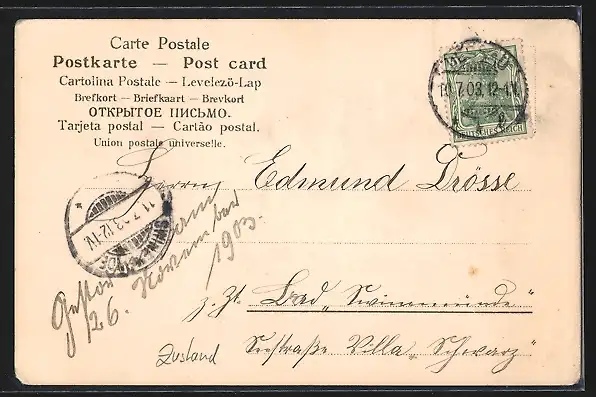 Carte Postale
Postkarte — Post card
Cartolina Postale — Levelező-Lap
Brefkort — Briefkaart — Brevkort
ОТКРЫТОЕ ПИСЬМО.
Tarjeta postal — Cartão postal.
Union postale universelle.
10.7.03.12-1N.
DEUTSCHES REICH
Herrn Edmund Drösse
11.7.03.12-1V.
26. November
1903.
z. Zt. Bad „Swinemünde"
Zustand
Seestraße Villa „Schwarz"